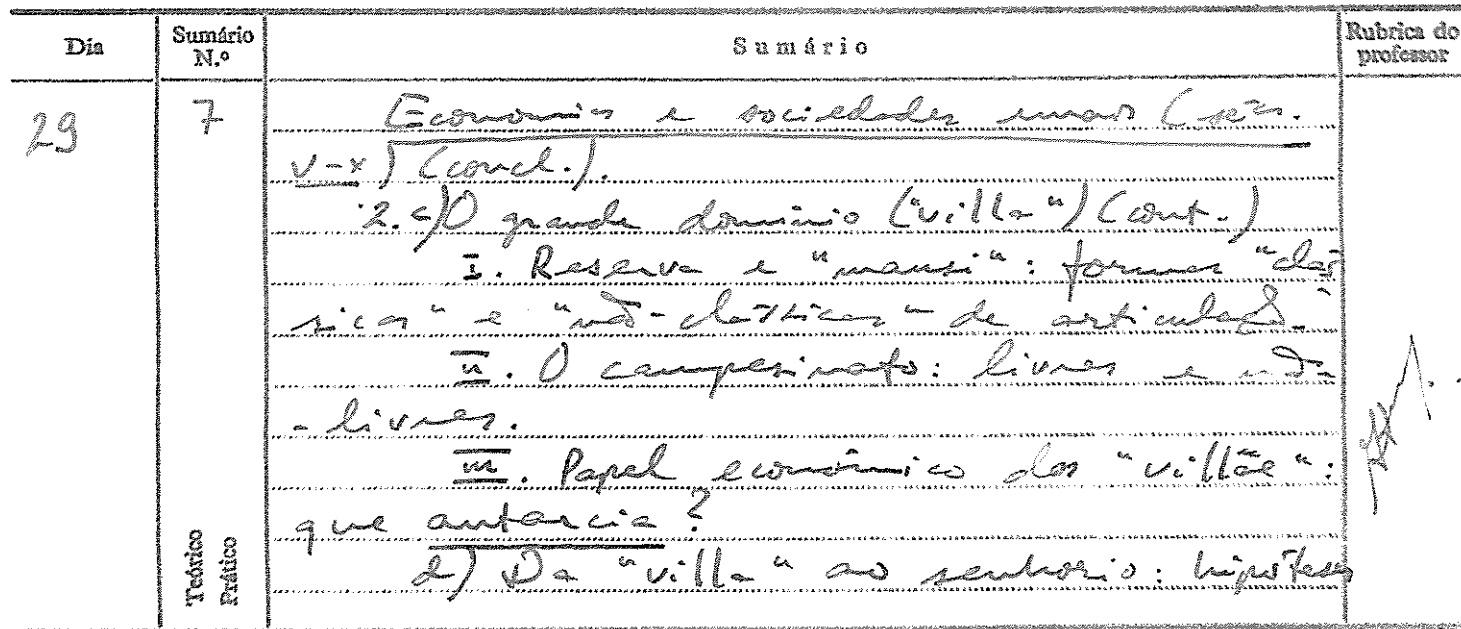 Dia
Sumário N.º
Sumário
Rubrica do professor
29
7
Economias e sociedades rurais (sécs.
V-X) (concl.).
2. c) O grande domínio ("villa") (cont.)
I. Reserva e "mansi": formas "clás-
sicas" e "não-clássicas" de articulação.
II. O campesinato: livres e não-
-livres.
III. Papel económico das "villae":
que autarcia?
d) Da "villa" ao senhorio: hipóteses
Teórico
Prático